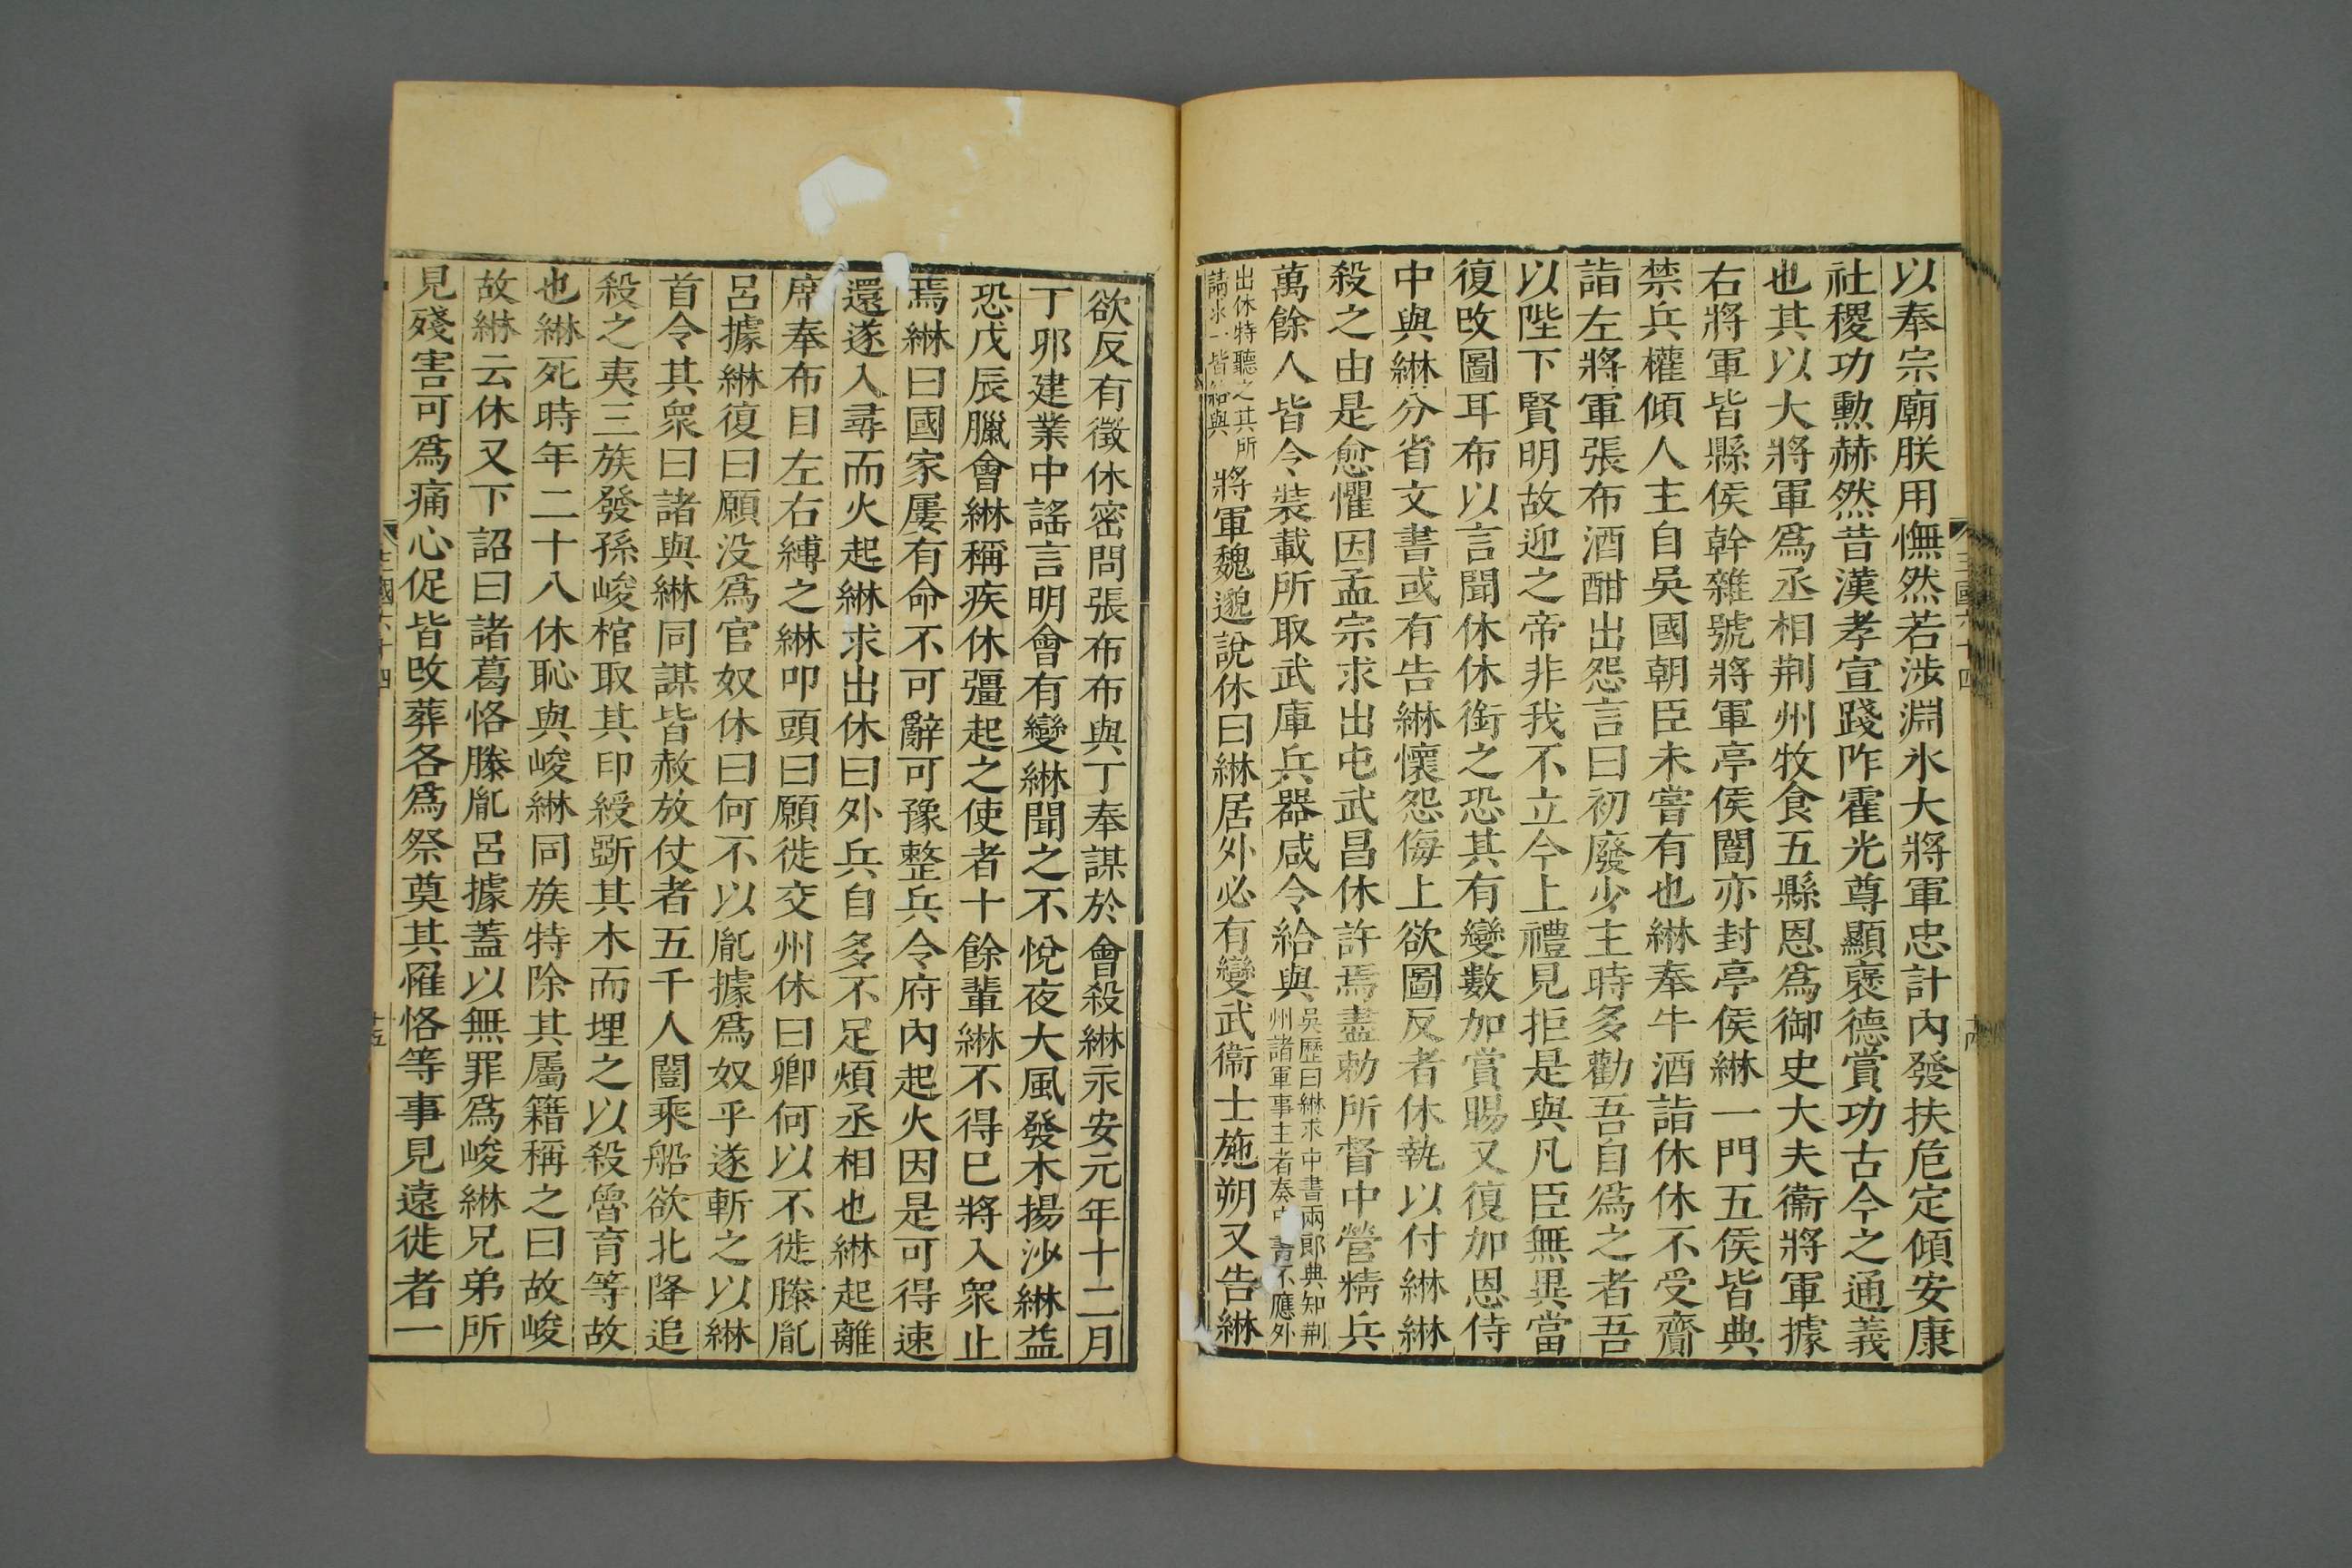 以奉宗廟朕用憮然若涉淵氷大將軍忠計內發扶危定傾安康
社稷功勲赫然昔漢孝宣踐阼霍光尊顯褒德賞功古今之通義
也其以大將軍爲丞相荆州牧食五縣恩爲御史大夫衞將軍據
右將軍皆縣侯幹雜號將軍亭侯闓亦封亭侯綝一門五侯皆典
禁兵權傾人主自吳國朝臣未嘗有也綝奉牛酒詣休休不受齎
詣左將軍張布酒酣出怨言曰初廢少主時多勸吾自爲之者吾
以陛下賢明故迎之帝非我不立今上禮見拒是與凡臣無異當
復改圖耳布以言聞休休銜之恐其有變數加賞賜又復加恩侍
中與綝分省文書或有告綝懷怨侮上欲圖反者休執以付綝綝
殺之由是愈懼因孟宗求出屯武昌休許焉盡勅所督中營精兵
萬餘人皆令裝載所取武庫兵器咸令給與
吳歷曰綝求中書兩郎典知荆
州諸軍事主者奏中書不應外
出休特聽之其所
請求一皆給與
將軍魏邈說休曰綝居外必有變武衞士施朔又告綝
三國六十四
欲反有徵休密問張布布與丁奉謀於會殺綝永安元年十二月
丁卯建業中謠言明會有變綝聞之不悅夜大風發木揚沙綝益
恐戊辰臘會綝稱疾休彊起之使者十餘輩綝不得已將入衆止
焉綝曰國家屢有命不可辭可豫整兵令府內起火因是可得速
還遂入尋而火起綝求出休曰外兵自多不足煩丞相也綝起離
席奉布目左右縛之綝叩頭曰願徙交州休曰卿何以不徙滕胤
呂據綝復曰願没爲官奴休曰何不以胤據爲奴乎遂斬之以綝
首令其衆曰諸與綝同謀皆赦放仗者五千人闓乘船欲北降追
殺之夷三族發孫峻棺取其印綬斲其木而埋之以殺魯育等故
也綝死時年二十八休恥與峻綝同族特除其屬籍稱之曰故峻
故綝云休又下詔曰諸葛恪滕胤呂據蓋以無罪爲峻綝兄弟所
見殘害可爲痛心促皆改葬各爲祭奠其罹恪等事見遠徙者一
三國六十四
十五